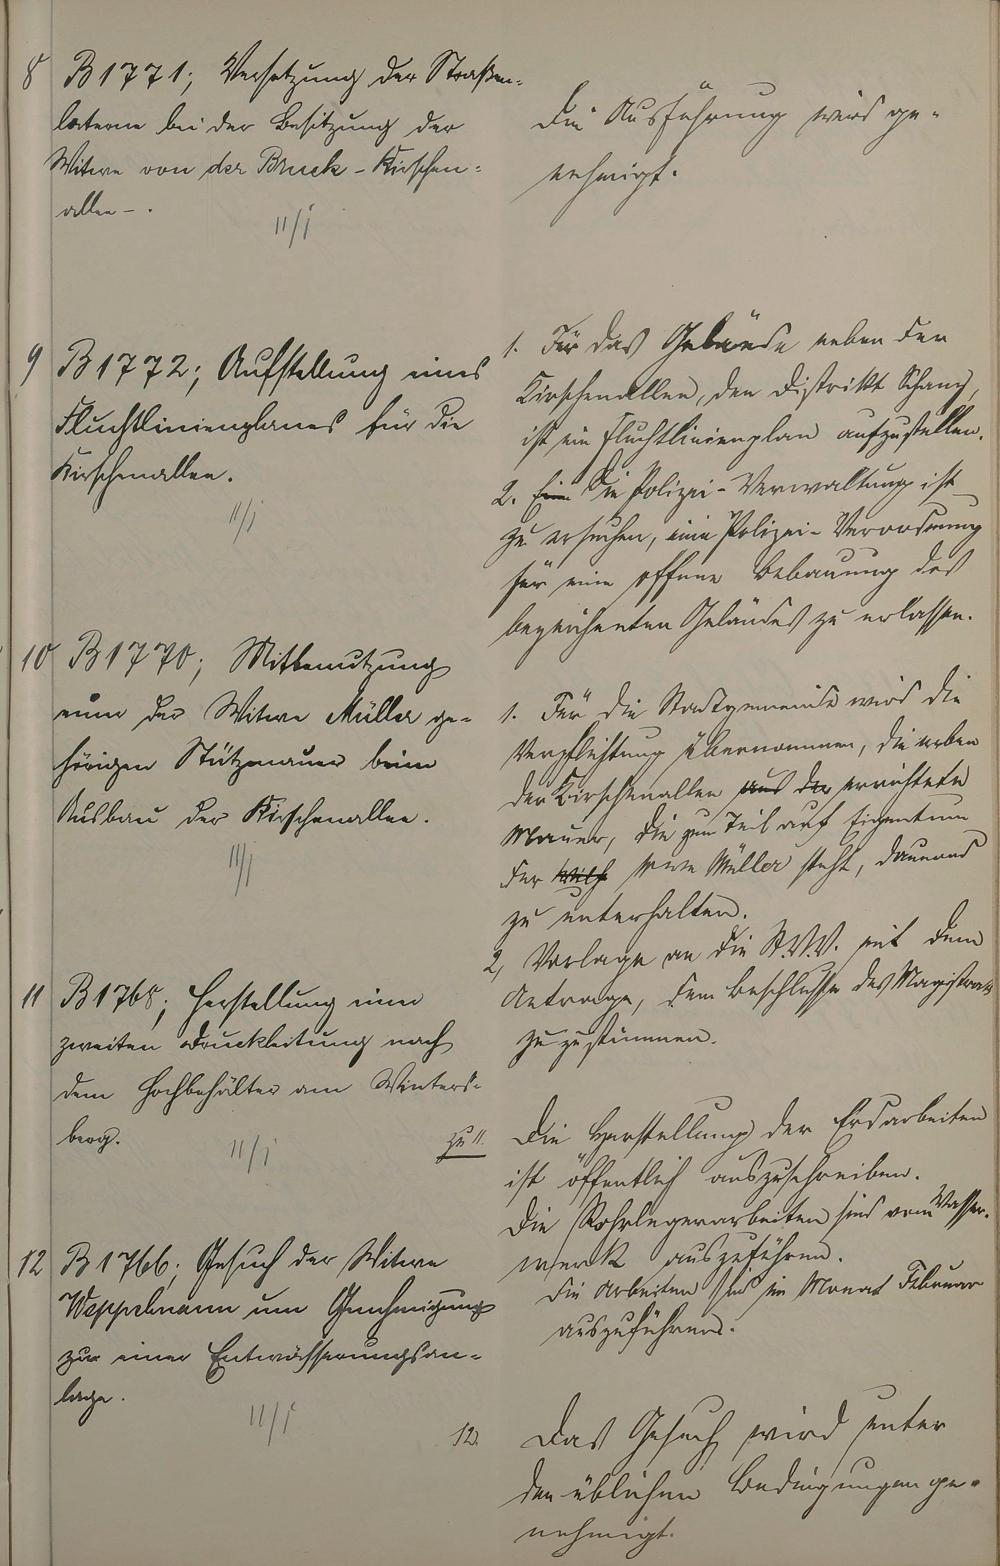 8 B 1771; Versetzung der Straßen-
laterne bei der Besitzung der
Witwe von der Bruck - Kirschen-
allee - .
11/i
Die Ausführung wird ge-
nehmigt.
9 B 1772; Aufstellung eines
Fluchtlinienplanes für die
Kirschenallee.
11/i
1. Für das Gelände neben der
Kirschenallee, den Distrikt Schanz,
ist ein Fluchtlinienplan aufzustellen.
2. Eine Die Polizei-Verwaltung ist
zu ersuchen, eine Polizei-Verordnung
für eine offene Bebauung des
bezeichneten Geländes zu erlassen.
10 B 1770; Mitbenutzung
einer der Witwe Müller ge-
hörigen Stützmauer beim
Ausbau der Kirschenallee.
11/i
1. Für die Stadtgemeinde wird die
Verpflichtung übernommen, die neben
der Kirschenallee aus der errichtete
Mauer, die zum Teil auf Eigentum
der Witwe Müller steht, dauernd
zu unterhalten.
2, Vorlage an die St.V.V. mit dem
Antrage, dem Beschlusse des Magistrats
zuzustimmen.
11 B 1768; Herstellung einer
zweiten Druckleitung nach
dem Hochbehälter am Winters-
berg.
11/i
zu 11.
Die Herstellung der Erdarbeiten
ist öffentlich auszuschreiben.
Die Rohrlegerarbeiten sind vom Wasser-
werk auszuführen.
Die Arbeiten sind im Monat Februar
auszuführen.
12 B 1766; Gesuch der Witwe
Weppelmann um Genehmigung
zur einer Entwässerungsan-
lage.
11/i
12.
Das Gesuch wird unter
den üblichen Bedingungen ge-
nehmigt.